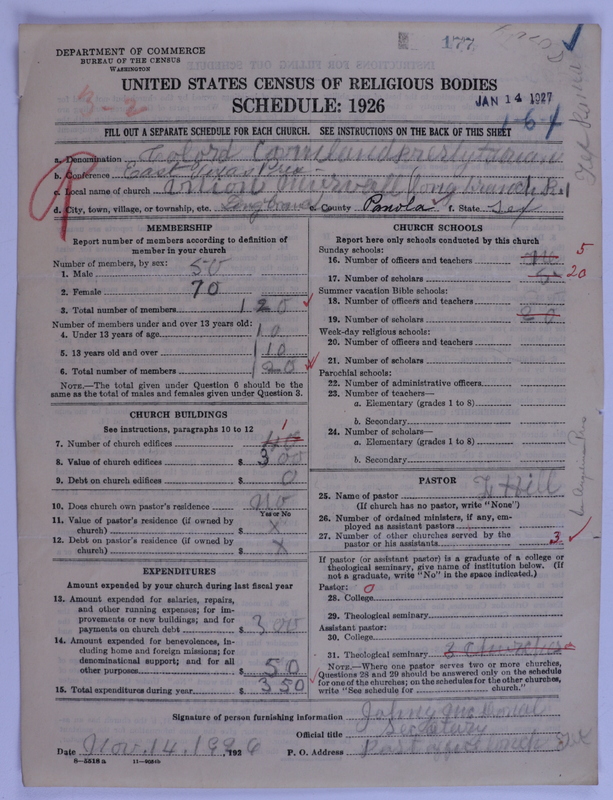 177
DEPARTMENT OF COMMERCE
BUREAU OF THE CENSUS
WASHINGTON
UNITED STATES CENSUS OF RELIGIOUS BODIES
SCHEDULE: 1926
JAN 14 1927
3-2
FILL OUT A SEPARATE SCHEDULE FOR EACH CHURCH. SEE INSTRUCTIONS ON THE BACK OF THIS SHEET
a. Denomination Colord
b. Conference East Texas
c. Local name of church Union
d. City, town, village, or township, etc. County Panola e. State Tex
MEMBERSHIP
Report number of members according to definition of
member in your church
Number of members, by sex:
1. Male 50
2. Female 70
3. Total number of members 120
Number of members under and over 13 years old:
4. Under 13 years of age 10
5. 13 years old and over 110
6. Total number of members 120
NOTE.—The total given under Question 6 should be the
same as the total of males and females given under Question 3.
CHURCH BUILDINGS
See instructions, paragraphs 10 to 12
7. Number of church edifices 1
8. Value of church edifices $ 300
9. Debt on church edifices $ 0
10. Does church own pastor's residence no
Yes or No
11. Value of pastor's residence (if owned by
church) $ x
12. Debt on pastor's residence (if owned by
church) $ x
EXPENDITURES
Amount expended by your church during last fiscal year
13. Amount expended for salaries, repairs,
and other running expenses; for im-
provements or new buildings; and for
payments on church debt $ 300
14. Amount expended for benevolences, in-
cluding home and foreign missions; for
denominational support; and for all
other purposes $ 50
15. Total expenditures during year $ 350
CHURCH SCHOOLS
Report here only schools conducted by this church
Sunday schools:
16. Number of officers and teachers 5
17. Number of scholars 20
Summer vacation Bible schools:
18. Number of officers and teachers
19. Number of scholars 20
Week-day religious schools:
20. Number of officers and teachers
21. Number of scholars
Parochial schools:
22. Number of administrative officers
23. Number of teachers—
a. Elementary (grades 1 to 8)
b. Secondary
24. Number of scholars—
a. Elementary (grades 1 to 8)
b. Secondary
PASTOR
25. Name of pastor Hill
(If church has no pastor, write "None")
26. Number of ordained ministers, if any, em-
ployed as assistant pastors
27. Number of other churches served by the
pastor or his assistants 3
If pastor (or assistant pastor) is a graduate of a college or
theological seminary, give name of institution below. (If
not a graduate, write "No" in the space indicated.)
Pastor: 0
28. College
29. Theological seminary
Assistant pastor:
30. College
31. Theological seminary 3 Churches
NOTE.—Where one pastor serves two or more churches,
Questions 28 and 29 should be answered only on the schedule
for one of the churches; on the schedules for the other churches,
write "See schedule for church."
Signature of person furnishing information
Official title Secretary
Date Nov. 14. 1926, 1926 P. O. Address Tex
8—5518 a 11—9034b